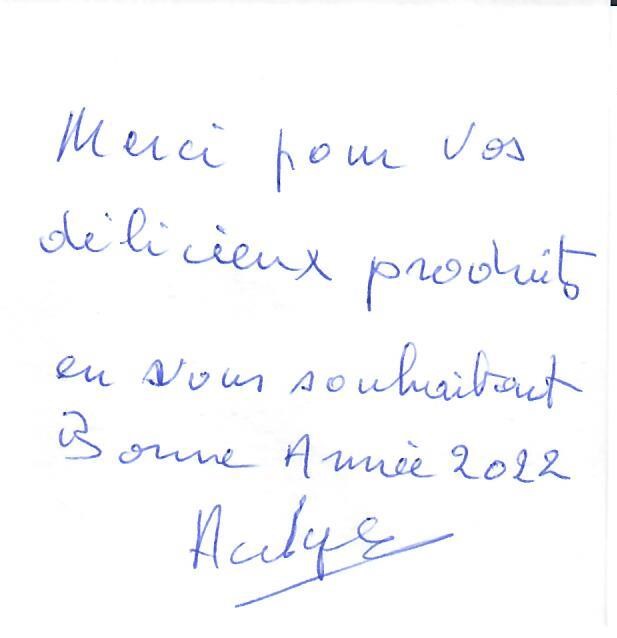 Merci pour vos
délicieux produits
en vous souhaitant
Bonne Année 2022